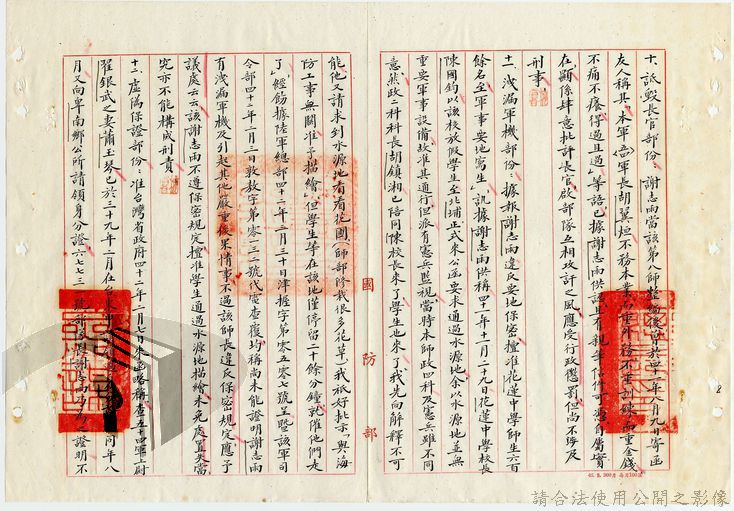 十、詆毀長官部份：謝志雨當該第八師整編後曾於四十一年八月九日寄函
友人稱其「本軍軍長胡翼烜不務本業而重外務不重訓練而重金錢
不痛不癢得過且過」等語已據謝志雨供認且有親筆信件可憑自屬實
在顯係肆意批評長官啟部隊互相攻訐之風應受行政懲罰但尚不涉及
刑事
十一、洩漏軍機部份：據報謝志雨違反要地保密擅准花蓮中學師生六百
餘名至軍事要地寫生」訊據謝志雨供稱四十一年十一月二十九日花蓮中學校長
陳國鈞以該校放假學生至北埔正式來公函要求通過水源地余以水源地並無
重要軍事設備故准其通行但派有憲兵監視當時本師政四科及憲兵雖不同
意然政二科科長胡鎮湘已陪同陳校長來了學生也來了我先向解釋不可
能他又請求到水源地看看花園(師部修栽很多花草)我祇好批示「與海
防工事無關准予描繪」但學生等在該地僅停留二十餘分鐘就催他們走
了」經飭據陸軍總部四十二年三月三十日津握字第零五零七號呈暨該軍司
令部四十二年二月二日敦敖字第零一三二號代電查覆均稱尚未能證明謝志雨
有洩漏軍機及引起其他嚴重後果情事不過該師長違反保密規定應予
議處云云該謝志雨不遵保密規定擅准學生通過水源地描繪未免處置失當
究亦不能構成刑責
十二、虛偽保證部份：准台灣省政府四十二年二月七日來函略稱查五十四軍上尉
翟銀武之妻蕭玉琴已於三十九年二月在台東 同年八
月又向卑南鄉公所請領身分證六七七三 號 謝志雨 證明不
國防部
請合法使用公開之影像